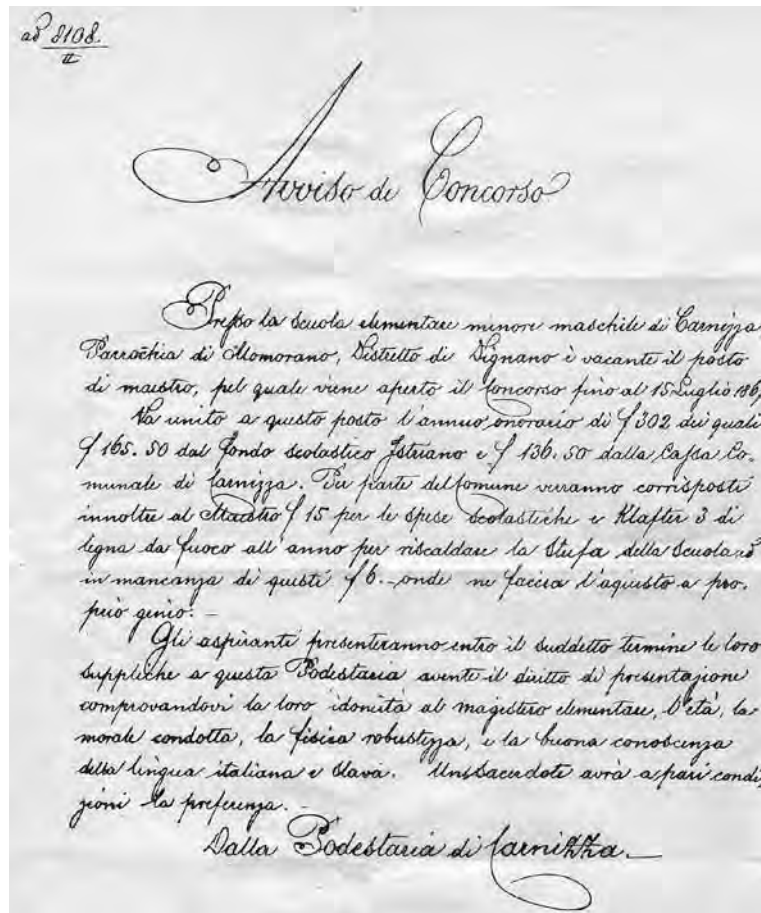 ad 8108.
II
Avviso di Concorso
Presso la scuola elementare minore maschile di Carnizza
Parrochia di Momorano, Distretto di Dignano è vacante il posto
di maestro, pel quale viene aperto il Concorso fino al 15 Luglio 186
Va unito a questo posto l'annuo onorario di f 302 dei quali
f 165.50 dal fondo scolastico Istriano e f 136.50 dalla Cassa Co-
munale di Carnizza. Per parte del Comune verranno corrisposti
innoltre al Maestro f 15 per le spese scolastiche e Klafter 3 di
legna da fuoco all'anno per riscaldare la Stufa della Scuola ed
in mancanza di questi f 6.- onde ne faccia l'aquisto a pro-
prio genio. -
Gli aspiranti presenteranno entro il suddetto termine le loro
suppliche a questa Podestaria avente il diritto di presentazione
comprovandovi la loro idoneità al magistero elementare, l'età, la
morale condotta, la fisica robustezza, e la buona conoscenza
della lingua italiana e slava. Un Sacerdote avrà a pari condi-
zioni la preferenza. -
Dalla Podestaria di Carnizza. -